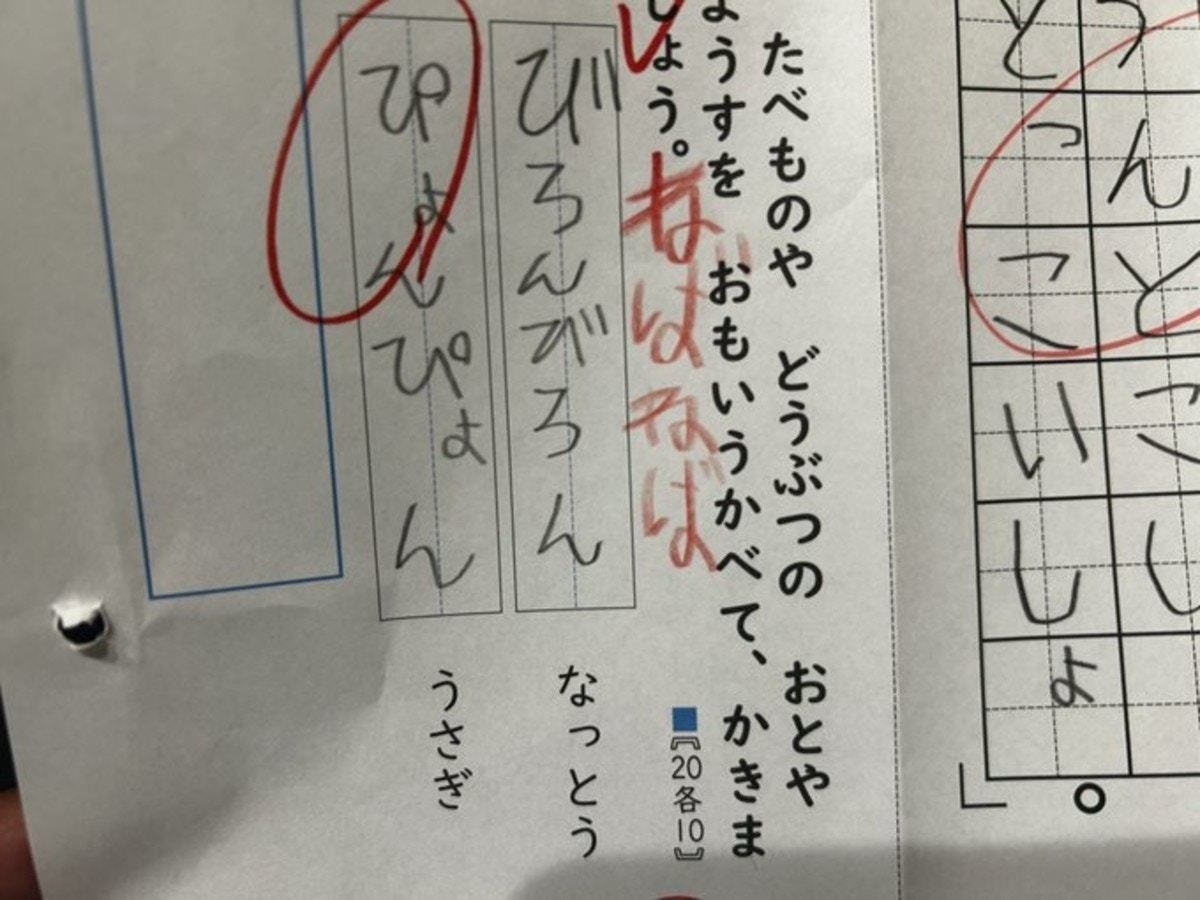 うんとこし
とっこいしょ
たべものや どうぶつの おとや
ようすを おもいうかべて、かきま
しょう。
ねばねば
■〘20各10〙
びろんびろん
なっとう
ぴょんぴょん
うさぎ